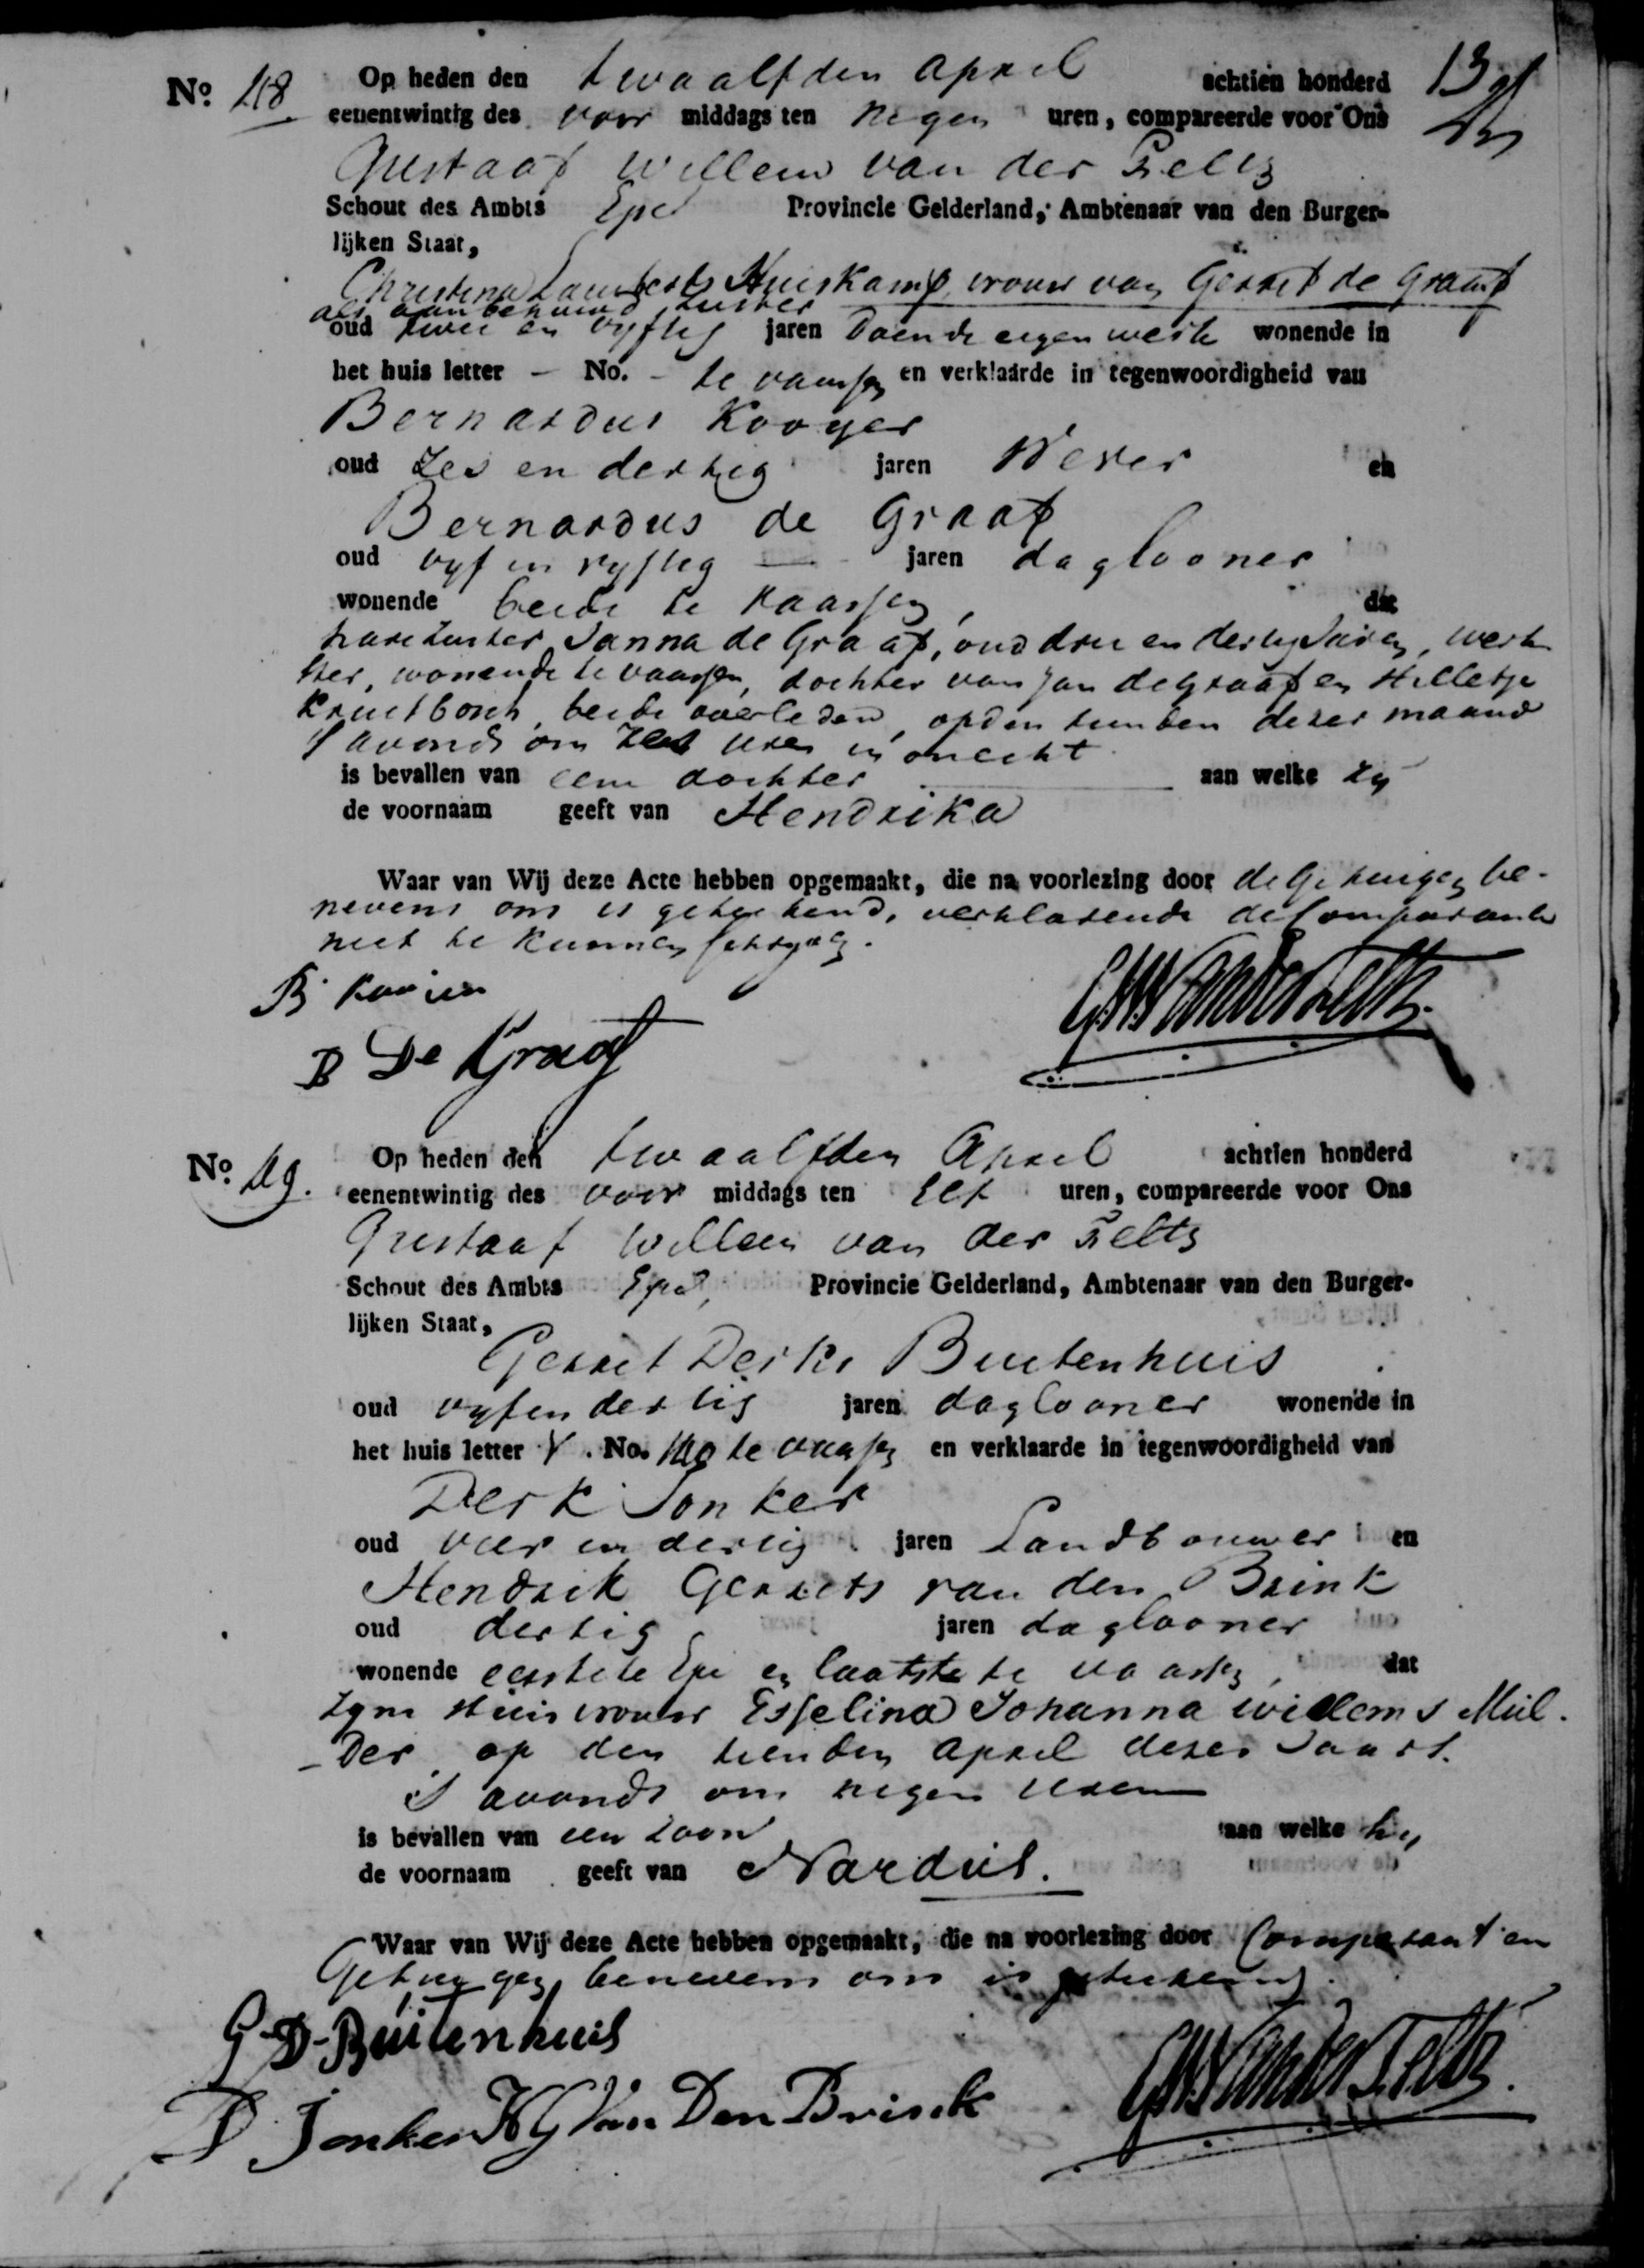 No. 48 Op heden den twaalfden April achtien honderd
eenentwintig des voor middags ten negen uren, compareerde voor Ons
Gustaaf Willem van der Feltz
Schout des Ambts Epe Provincie Gelderland, Ambtenaar van den Burger-
lijken Staat,
Christina Lamberts Huiskamp, vrouw van Gerrit de Graaf
als aanbehuwd zuster
oud twee en vyftig jaren doende eigen werk wonende in
het huis letter – No. – te vaassen en verklaarde in tegenwoordigheid van
Bernardus Kooyer
oud zes en dertig jaren Wever en
Bernardus de Graaf
oud vyf en vyftig — jaren daglooner
wonende beide te Vaassen, dat
hare zuster Janna de Graaf, oud drie en dertig Jaren, werk
ster, wonende te vaassen, dochter van Jan de Graaf en Hilletje
Kruitbosch, beide overleden, op den tienden dezer maand
s avonds om zes uren in onecht
is bevallen van eene dochter aan welke zy
de voornaam geeft van Hendrika
Waar van Wij deze Acte hebben opgemaakt, die na voorlezing door de Getuigen be-
nevens ons is geteekend, verklarende de Comparante
niet te kunnen schryven.
B Kooien
GW van der Feltz.
B De Graaf
No. 49. Op heden den twaalfden April achtien honderd
eenentwintig des voor middags ten elf uren, compareerde voor Ons
Gustaaf Willem van der Feltz
Schout des Ambts Epe, Provincie Gelderland, Ambtenaar van den Burger-
lijken Staat,
Gerrit Derks Buitenhuis
oud vyfendertig jaren daglooner wonende in
het huis letter No. te vaassen en verklaarde in tegenwoordigheid van
Derk Jonker
oud vier en dertig jaren Landbouwer en
Hendrik Gerrits van den Brink
oud dertig jaren daglooner
wonende eerste te Epe en laatste te vaassen, dat
zyne Huisvrouw Esselina Johanna willems Mul-
-der, op den tienden april dezes Jaars.
s avonds om negen uren
is bevallen van een zoon aan welke hy
de voornaam geeft van Nardus.
Waar van Wij deze Acte hebben opgemaakt, die na voorlezing door Comparant en
Getuigen, benevens ons is geteekend.
G-D-Buitenhuis
D. Jonker HG Van Den Brinck GW van der Feltz.